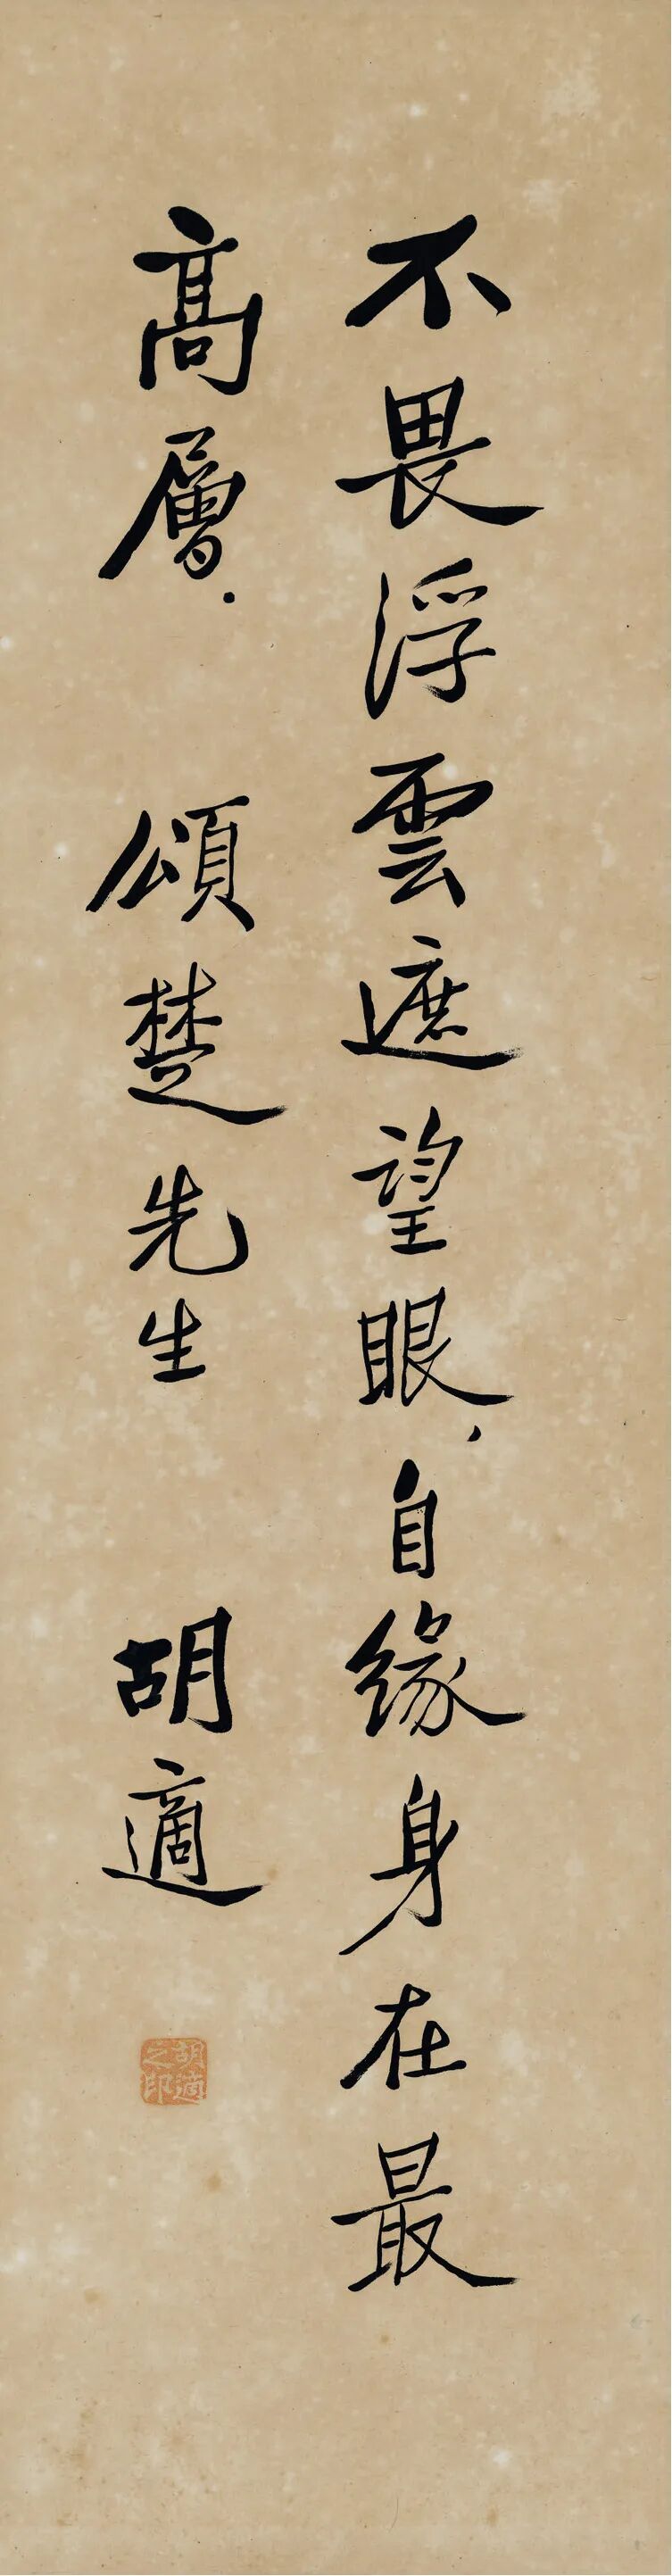 不畏浮雲遮望眼，自緣身在最
高層．　頌楚先生　胡適
胡適之印